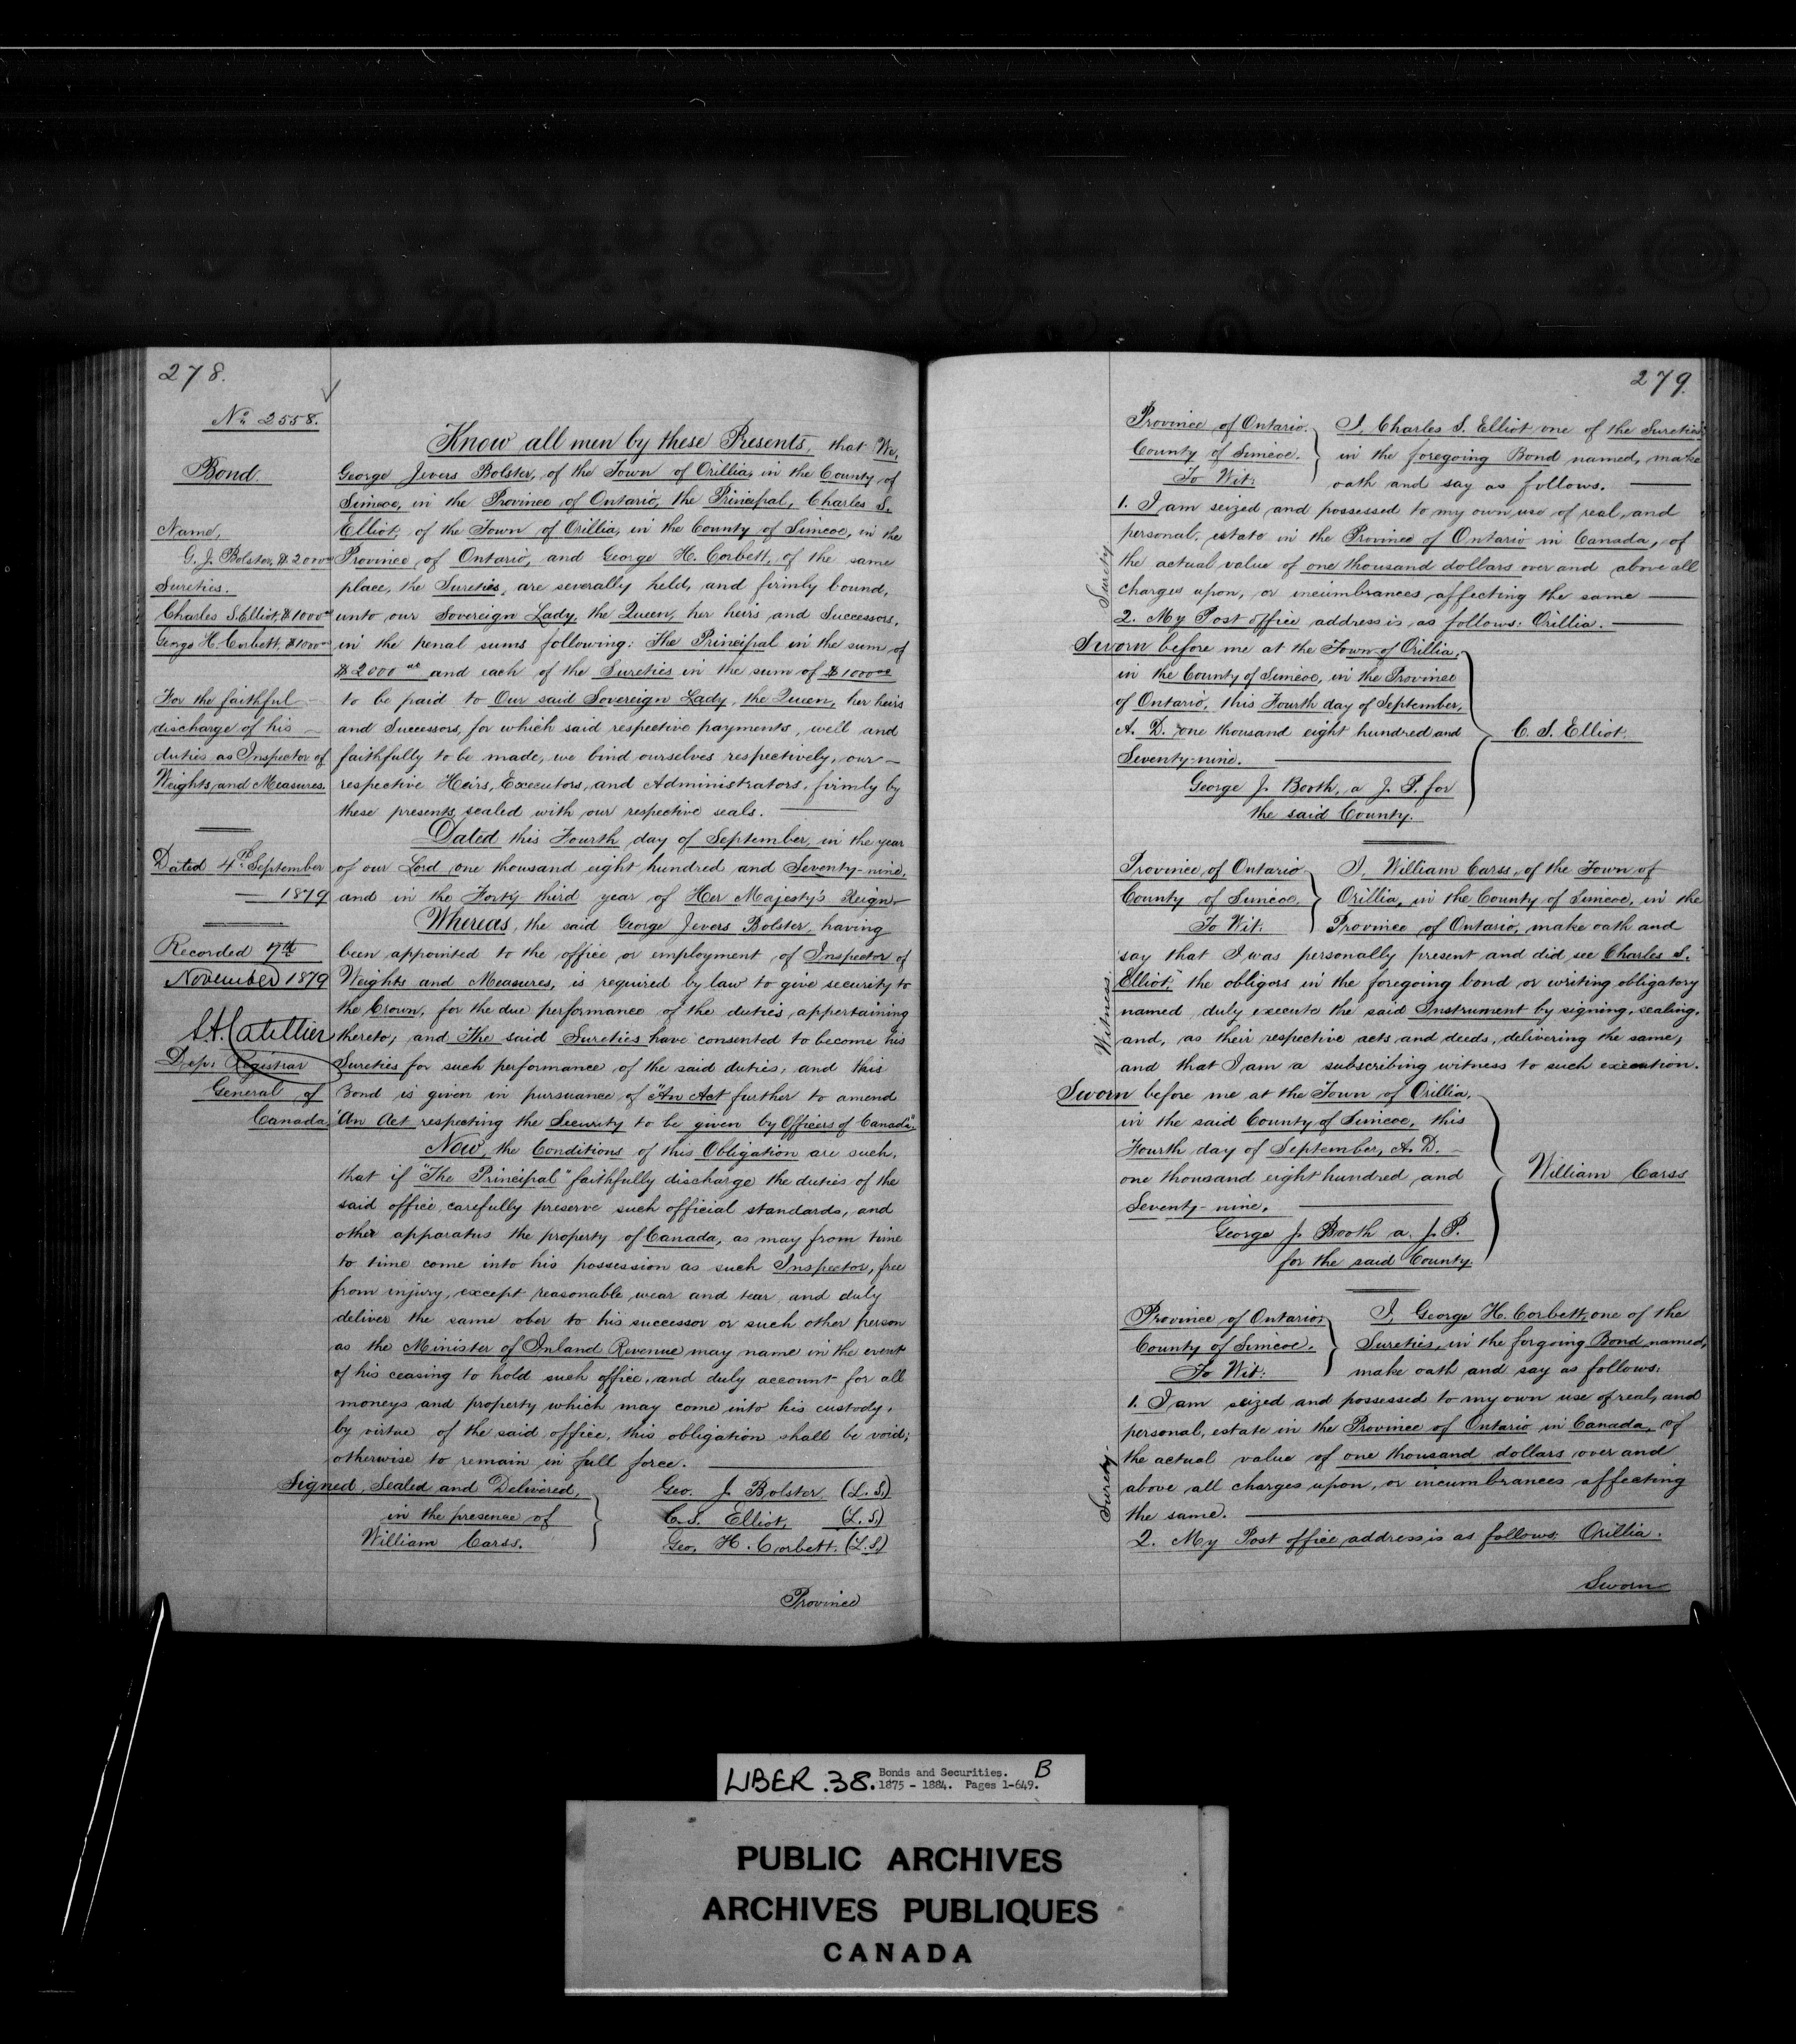 278.
No. 2558.
Bond.
Name,
G. J. Bolster, $2000.00
Sureties.
Charles S. Elliot, $1000.00
George H. Corbett, $1000.00
For the faithful
discharge of his
duties as Inspector of
Weights and Measures.
Dated 4th September
1879
Recorded 7th
November 1879
Dep: Registrar
General of
Canada.
Know all men by these Presents, that We,
George Jevers Bolster, of the Town of Orillia, in the County of
Simcoe, in the Province of Ontario, the Principal, Charles S.
Elliot, of the Town of Orillia, in the County of Simcoe, in the
Province of Ontario, and George H. Corbett, of the same
place, the Sureties, are severally held, and firmly bound,
unto our Sovereign Lady, the Queen, her heirs and Successors,
in the penal sums following: The Principal in the sum of
$2000.00 and each of the Sureties in the sum of $1000.00
to be paid to Our said Sovereign Lady, the Queen, her heirs
and Successors, for which said respective payments, well and
faithfully to be made, we bind ourselves respectively, our
respective Heirs, Executors, and Administrators, firmly by
these presents, sealed with our respective seals.
Dated this Fourth day of September, in the year
of our Lord one thousand eight hundred and Seventy-nine,
and in the Forty third year of Her Majesty's Reign
Whereas, the said George Jevers Bolster, having
been appointed to the office or employment of Inspector of
Weights and Measures, is required by law to give security to
the Crown, for the due performance of the duties appertaining
thereto, and The said Sureties have consented to become his
Sureties for such performance of the said duties, and this
Bond is given in pursuance of "An Act further to amend
"An Act respecting the Security to be given by Officers of Canada".
Now, the Conditions of this Obligation are such,
that if "The Principal" faithfully discharge the duties of the
said office, carefully preserve such official standards, and
other apparatus the property of Canada, as may from time
to time come into his possession as such Inspector, free
from injury, except reasonable wear and tear, and duly
deliver the same ober to his successor or such other person
as the Minister of Inland Revenue may name in the event
of his ceasing to hold such office, and duly account for all
moneys and property which may come into his custody,
by virtue of the said office, this obligation shall be void;
otherwise to remain in full force.
Signed, Sealed and Delivered, Geo. J. Bolster (L.S.)
in the presence of C. S. Elliot, (L.S.)
William Carss. Geo. H. Corbett. (L.S.)
Province
279.
Province of Ontario. I, Charles S. Elliot one of the Sureties
County of Simcoe. in the foregoing Bond named, make
To Wit: oath and say as follows.
Surety
1. I am seized and possessed to my own use of real, and
personal, estate in the Province of Ontario in Canada, of
the actual value of one thousand dollars over and above all
charges upon, or incumbrances affecting the same
2. My Post office address is as follows: Orillia.
Sworn before me at the Town of Orillia,
in the County of Simcoe, in the Province
of Ontario, this Fourth day of September,
A. D. one thousand eight hundred and C. S. Elliot.
Seventy-nine.
George J. Booth, a J. P. for
the said County.
Province of Ontario I, William Carss, of the Town of
County of Simcoe, Orillia, in the County of Simcoe, in the
To Wit. Province of Ontario, make oath and
Witness
say that I was personally present and did see Charles S.
Elliot, the obligors in the foregoing bond or writing obligatory
named duly execute the said Instrument by signing, sealing,
and, as their respective acts and deeds, delivering the same,
and that I am a subscribing witness to such execution.
Sworn before me at the Town of Orillia,
in the said County of Simcoe, this
Fourth day of September, A. D.
one thousand eight hundred and William Carss
Seventy-nine.
George J. Booth a. J. P.
for the said County.
Province of Ontario, I, George H. Corbett, one of the
County of Simcoe. Sureties, in the forgoing Bond named,
To Wit: make oath and say as follows:
Surety
1. I am seized and possessed to my own use of real, and
personal, estate in the Province of Ontario in Canada, of
the actual value of one thousand dollars over and
above all charges upon, or incumbrances affecting
the same.
2. My Post office address is as follows: Orillia.
Sworn
LIBER. 38. Bonds and Securities. B
1875 - 1884. Pages 1-649.
PUBLIC ARCHIVES
ARCHIVES PUBLIQUES
CANADA